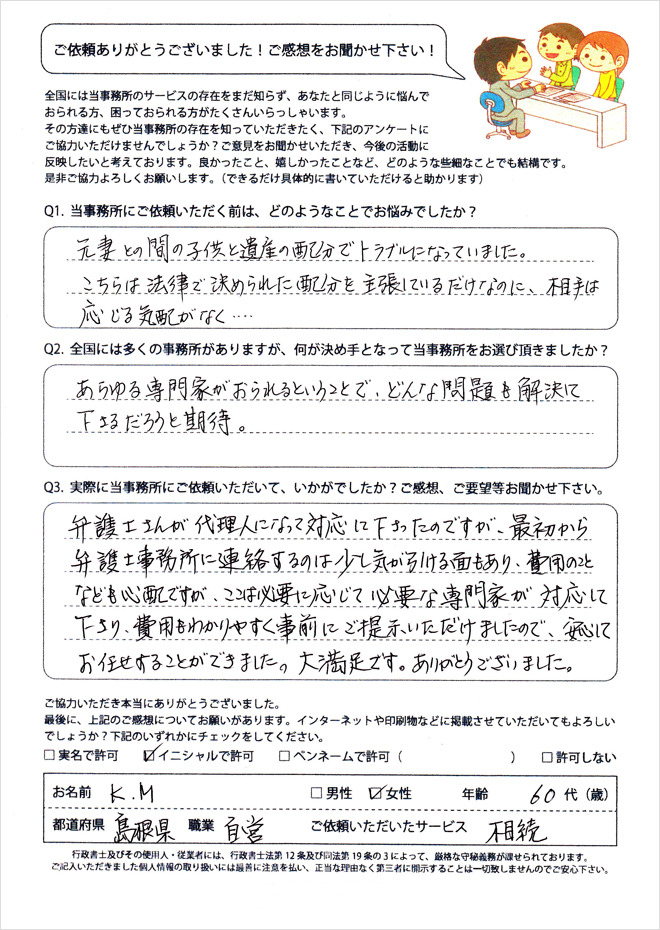 ご依頼ありがとうございました！ご感想をお聞かせ下さい！
全国には当事務所のサービスの存在をまだ知らず、あなたと同じように悩んで
おられる方、困っておられる方がたくさんいらっしゃいます。
その方達にもぜひ当事務所の存在を知っていただきたく、下記のアンケートに
ご協力いただけませんでしょうか？ご意見をお聞かせいただき、今後の活動に
反映したいと考えております。良かったこと、嬉しかったことなど、どのような些細なことでも結構です。
是非ご協力よろしくお願いします。（できるだけ具体的に書いていただけると助かります）
Q1. 当事務所にご依頼いただく前は、どのようなことでお悩みでしたか？
元妻との間の子供と遺産の配分でトラブルになっていました。
こちらは法律で決められた配分を主張しているだけなのに、相手は
応じる気配がなく‥‥
Q2. 全国には多くの事務所がありますが、何が決め手となって当事務所をお選び頂きましたか？
あらゆる専門家がおられるということで、どんな問題も解決して
下さるだろうと期待。
Q3. 実際に当事務所にご依頼いただいて、いかがでしたか？ご感想、ご要望等お聞かせ下さい。
弁護士さんが代理人になって対応して下さったのですが、最初から
弁護士事務所に連絡するのは少し気が引ける面もあり、費用のこと
なども心配ですが、ここは必要に応じて必要な専門家が対応して
下さり、費用もわかりやすく事前にご提示いただけましたので、安心して
お任せすることができました。大満足です。ありがとうございました。
ご協力いただき本当にありがとうございました。
最後に、上記のご感想についてお願いがあります。インターネットや印刷物などに掲載させていただいてもよろしい
でしょうか？下記のいずれかにチェックをしてください。
□ 実名で許可 ☑ イニシャルで許可 □ ペンネームで許可（ ） □ 許可しない
お名前 K.M □ 男性 ☑ 女性 年齢 60 代（歳）
都道府県 島根県 職業 自営 ご依頼いただいたサービス 相続
行政書士及びその使用人・従業者には、行政書士法第12条及び同法第19条の3によって、厳格な守秘義務が課せられております。
ご記入いただきました個人情報の取り扱いには最善に注意を払い、正当な理由なく第三者に開示することは一切致しませんのでご安心下さい。